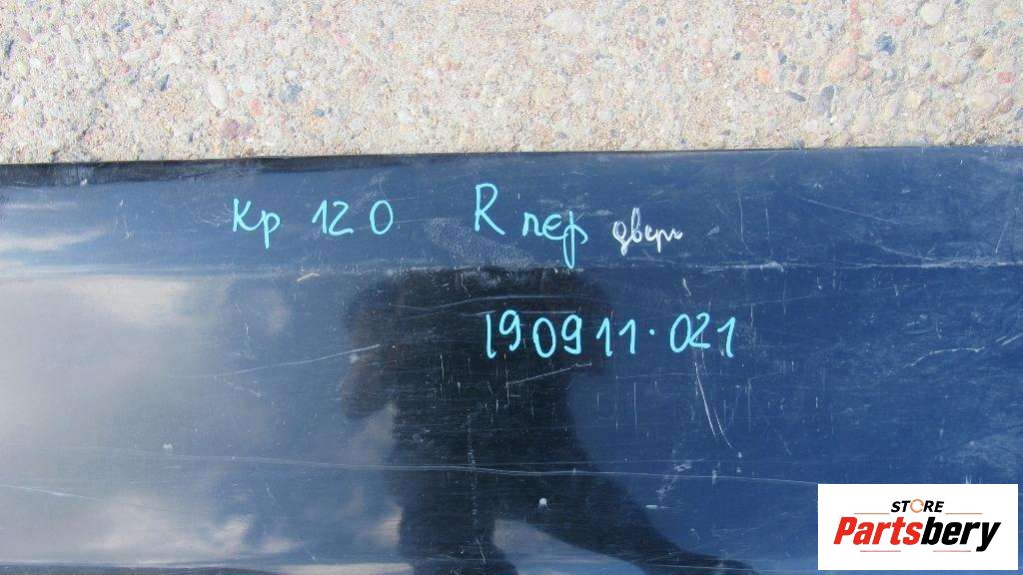 Кр 120 R пер дверь
190911.021
STORE
Partsbery